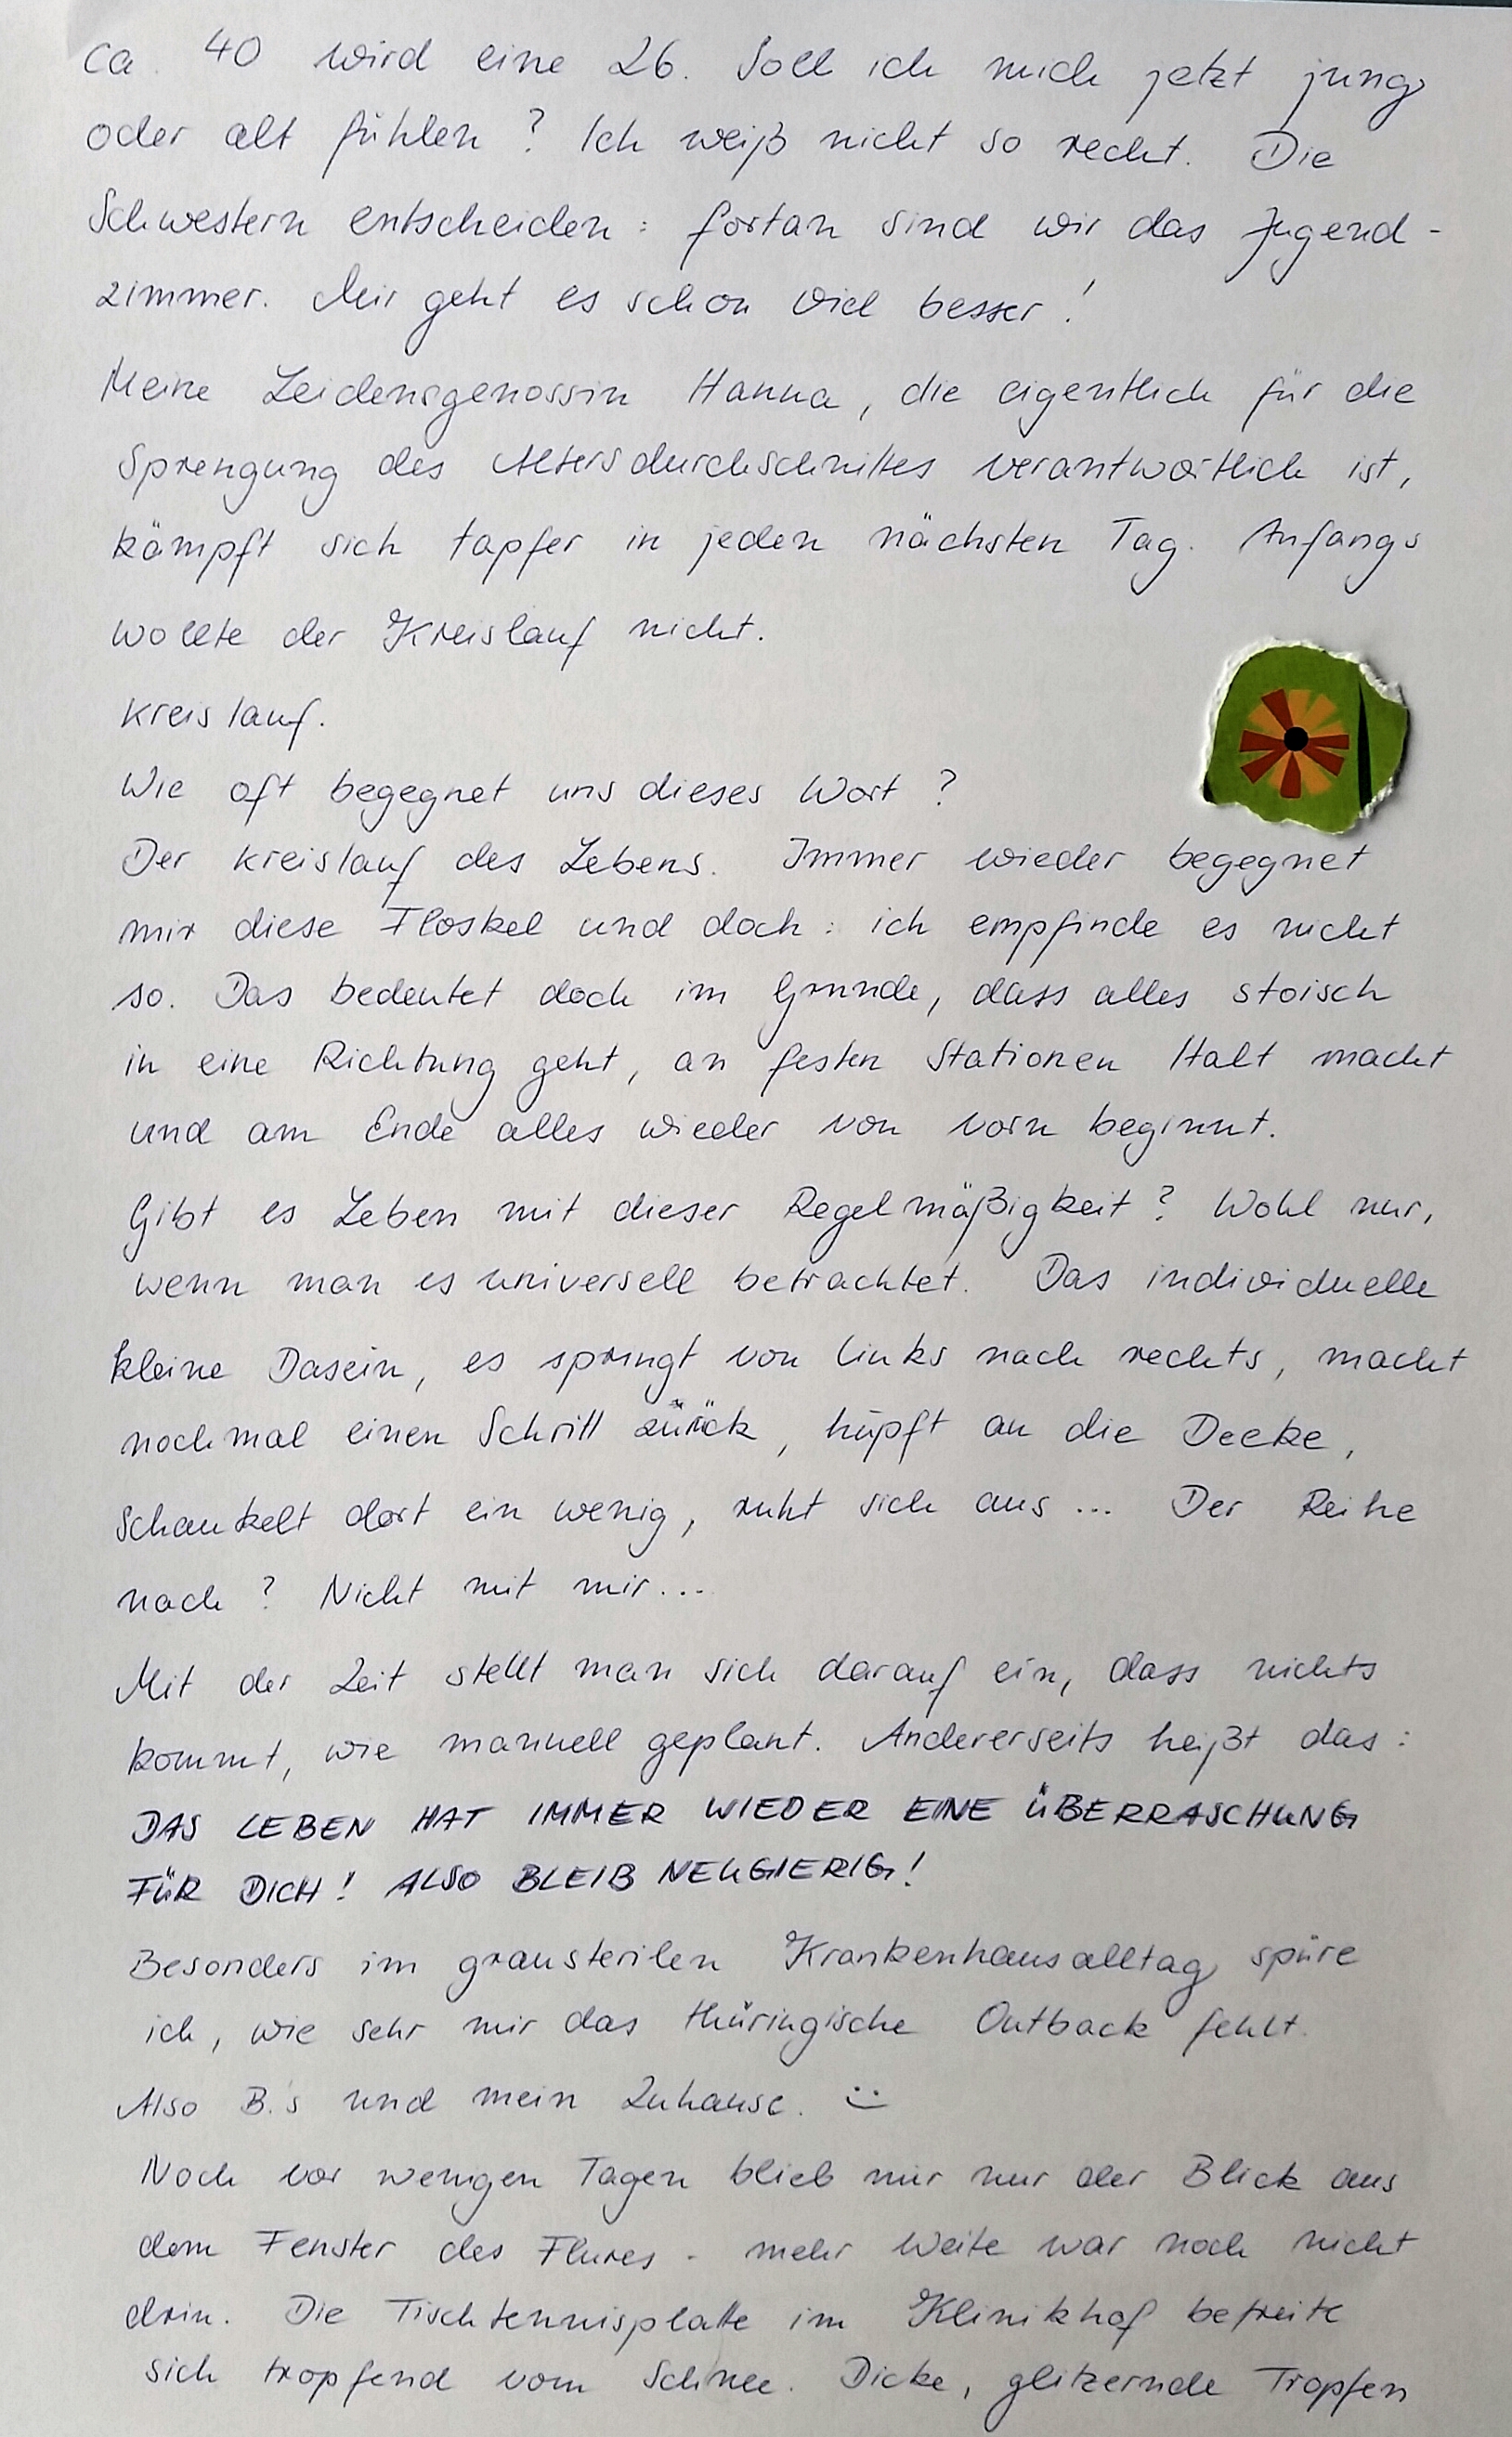 ca. 40 wird eine 26. Soll ich mich jetzt jung
oder alt fühlen? Ich weiß nicht so recht. Die
Schwestern entscheiden: fortan sind wir das Jugend-
zimmer. Mir geht es schon viel besser!
Meine Leidensgenossin Hanna, die eigentlich für die
Sprengung des Altersdurchschnittes verantwortlich ist,
kämpft sich tapfer in jeden nächsten Tag. Anfangs
wollte der Kreislauf nicht.
Kreislauf.
Wie oft begegnet uns dieses Wort?
Der Kreislauf des Lebens. Immer wieder begegnet
mir diese Floskel und doch: ich empfinde es nicht
so. Das bedeutet doch im Grunde, dass alles stoisch
in eine Richtung geht, an festen Stationen Halt macht
und am Ende alles wieder von vorn beginnt.
Gibt es Leben mit dieser Regelmäßigkeit? Wohl nur,
wenn man es universell betrachtet. Das individuelle
kleine Dasein, es springt von links nach rechts, macht
nochmal einen Schritt zurück, hüpft an die Decke,
schaukelt dort ein wenig, ruht sich aus... Der Reihe
nach? Nicht mit mir...
Mit der Zeit stellt man sich darauf ein, dass nichts
kommt, wie manuell geplant. Andererseits heißt das:
DAS LEBEN HAT IMMER WIEDER EINE ÜBERRASCHUNG
FÜR DICH! ALSO BLEIB NEUGIERIG!
Besonders im grausterilen Krankenhausalltag spüre
ich, wie sehr mir das thüringische Outback fehlt.
Also B.'s und mein Zuhause. :)
Noch vor wenigen Tagen blieb mir nur der Blick aus
dem Fenster des Flures - mehr Weite war noch nicht
drin. Die Tischtennisplatte im Klinikhof befreite
sich tropfend vom Schnee. Dicke, glitzernde Tropfen